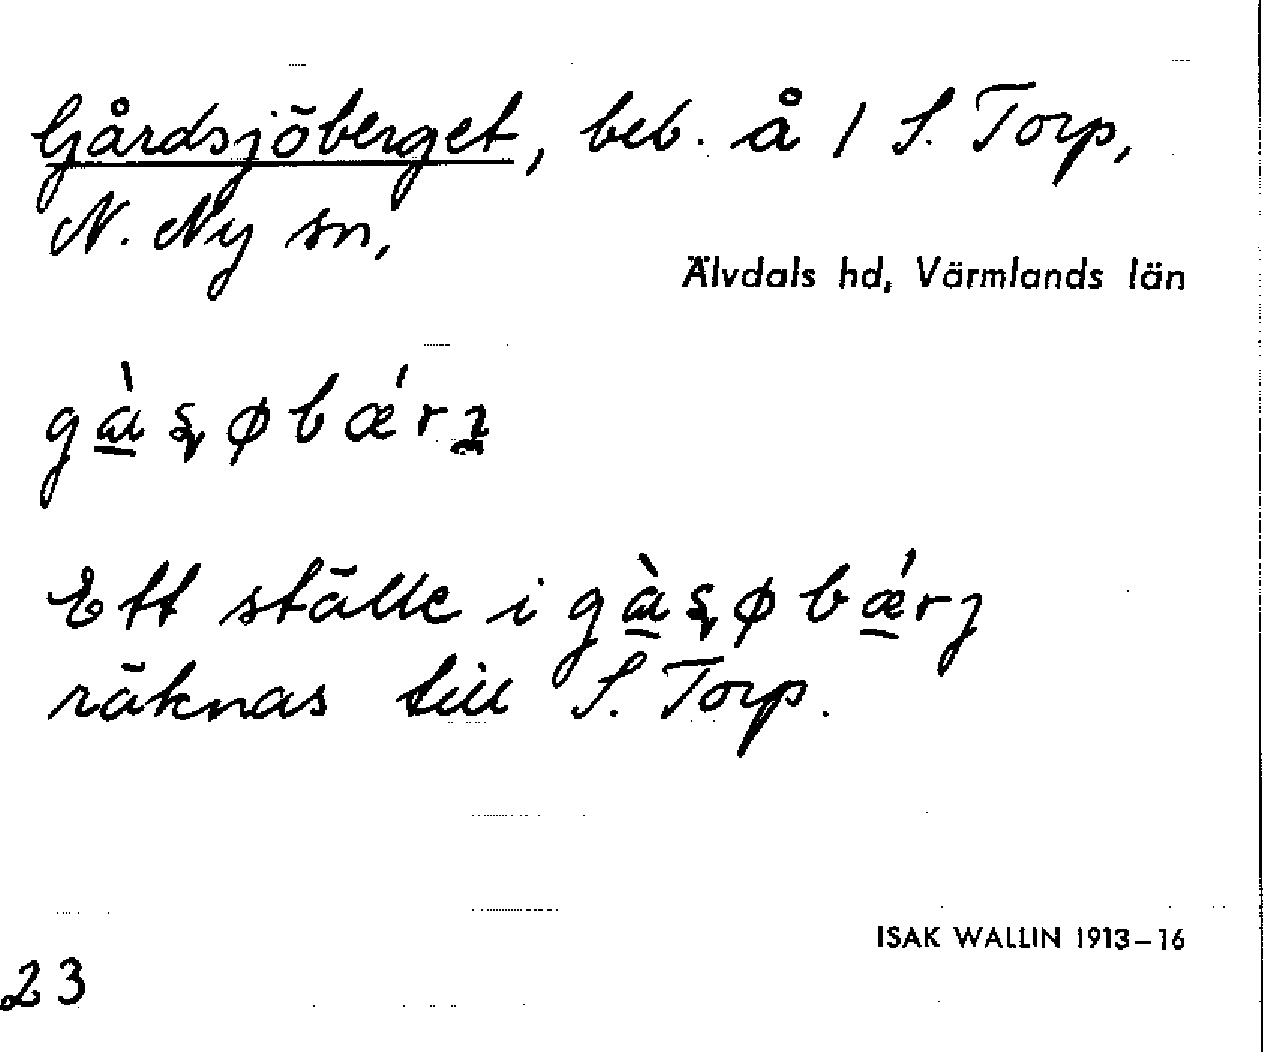 Gårdsjöberget, beb. å 1 S. Torp,
N. Ny sn,
Älvdals hd, Värmlands län
Ett ställe i
räknas till S. Torp.
ISAK WALLIN 1913–16
23